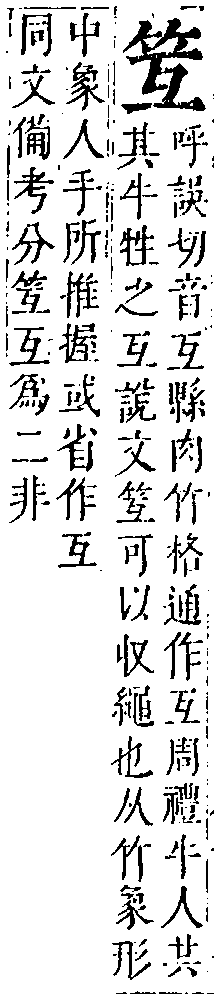 笠
呼誤切音互縣肉竹格通作互周禮牛人共
其牛牲之互說文笠可以收繩也从竹象形
中象人手所推握或省作互
同文備考分笠互爲二非